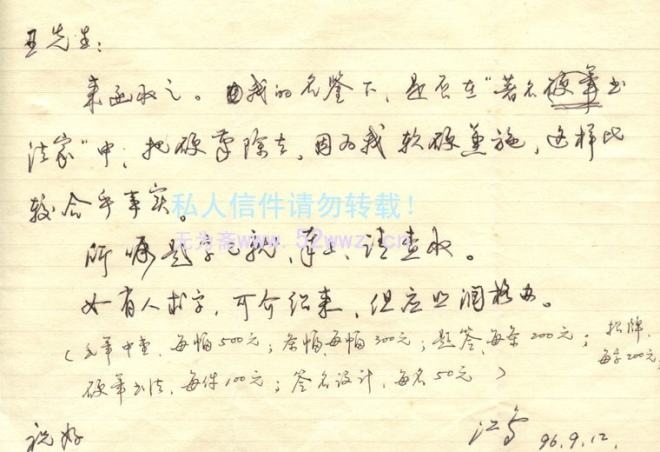 王先生:
来函收之。由我的名鉴下,是否在"著名硬笔书
法家"中,把硬笔除去,因为我软硬兼施,这样比
较合乎事实。
私人信件请勿转载!
无为斋www.52wwz.cn
所嘱题字已就,奉上,请查收。
如有人求字,可介绍来,但应照润格办。
(毛笔中堂,每幅500元;条幅,每幅300元;题签,每条200元;招牌,每字200元;
硬笔书法,每件100元;签名设计,每名50元)
祝好
96.9.12.